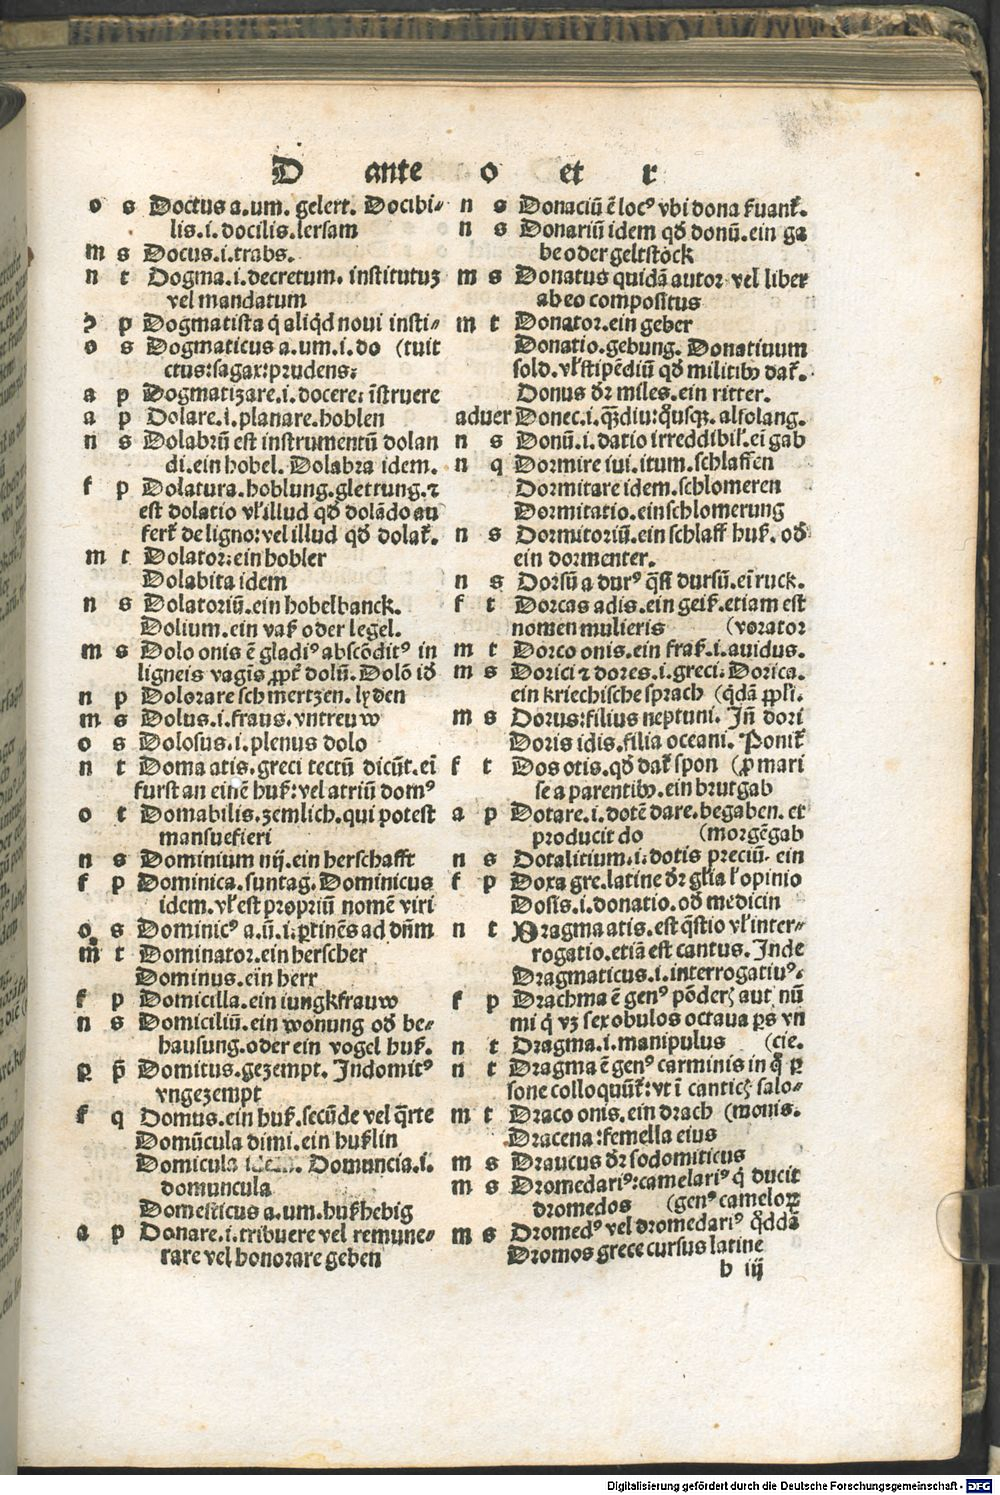 D ante o et r
o s Doctus a.um. gelert. Docibi-
lis.i.docilis.lersam
m s Docus.i.trabs.
n t Dogma.i.decretum. institutuꝫ
vel mandatum
p Dogmatista q̇ aliq̇d noui insti-
o s Dogmaticus a.um.i.do (tuit
ctus:sagax:prudens:
a p Dogmatizare.i.docere: īstruere
a p Dolare.i.planare.hoblen
n s Dolabrū est instrumentū dolan
di.ein hobel. Dolabra idem.
f p Dolatura.hoblung.glettung.⁊
est dolatio vl̕ illud qđ dolādo au
fert̕ de ligno: vel illud qđ dolat̕.
m t Dolator:ein hobler
Dolabita idem
n s Dolatoriū.ein hobelbanck.
Dolium.ein vaß oder legel.
m s Dolo onis ē gladiꝰ abscōditꝰ in
ligneis vagīs ꝓpt̕ dolū. Dolō id
n p Dolorare schmertzen. lyden
m s Dolus.i.fraus.vntreuw
o s Dolosus.i.plenus dolo
n t Doma atis.greci tectū dicūt.eī
furst an einē huß: vel atriū domꝰ
o t Domabilis.zemlich.qui potest
mansuefieri
n s Dominium nij.ein herschafft
f p Dominica.suntag. Dominicus
idem.vl̕ est propriū nomē viri
o s Dominicꝰ a.ū.i.ꝑtinēs ad dn̄m
m t Dominator.ein herscher
Dominus.ein herr
f p Domicilla.ein iungkfrauw
n s Domiciliū.ein wonung odꝫ be-
hausung.oder ein vogel huß.
p̄ Domitus.gezempt. Indomitꝰ
vngezempt
f q Domus.ein huß.secūde vel q̄rte
Domūcula dimi.ein hußlin
Domicula idem. Domuncia.i.
domuncula
Domesticus a.um.hußhebig
a p Donare.i.tribuere vel remune-
rare vel honorare geben
n s Donaciū ē locꝰ vbi dona ẜuant̕.
n s Donariū idem qđ donū.ein ga
be oder geltstöck
m s Donatus quidā autor vel liber
ab eo compositus
m t Donator.ein geber
Donatio.gebung. Donatiuum
sold.vl̕ stipēdiū qđ militibꝰ dat̕.
Donus dr̄ miles.ein ritter.
aduer Donec.i.q̄diu:q̄usqꝫ.alsolang.
n s Donū.i.datio irreddibil̕.eī gab
n q Dormire iui.itum.schlaffen
Dormitare idem.schlomeren
Dormitatio.einschlomerung
n s Dormitoriū.ein schlaff huß. odꝫ
ein dormenter.
n s Dorsū a durꝰ q̄si dursū.eī ruck.
f t Dorcas adis.ein geiß.etiam est
nomen mulieris (vorator
m t Dorco onis.ein fraß.i.auidus.
m s Dorici ⁊ dores.i.greci. Dorica.
ein kriechische sprach (q̄dā ꝓli.
m s Dorus:filius neptuni. In̄ dori
Doris idis.filia oceani. Ponit̕
f t Dos otis.qđ dat̕ spon (ꝓ mari
se a parentibꝰ.ein brutgab
a p Dotare.i.dotē dare.begaben. et
producit do (morgēgab
n s Dotalitium.i.dotis preciū. ein
f p Doxa gre.latine dr̄ gl̄ia l̕ opinio
Dosis.i.donatio.odꝫ medicin
n t Dragma atis.est q̄stio vl̕ inter-
rogatio.etiā est cantus. Inde
Dragmaticus.i.interrogatiuꝰ.
f p Drachma ē genꝰ pōderꝫ aut nū
mi q̇ vꝫ sex obulos octaua ꝑs vn
n t Dragma.i.manipulus (cie.
n t Dragma ē genꝰ carminis in q̊ ꝑ
sone colloquūt̕:vt ī canticꝫ salo-
m t Draco onis.ein drach (monis.
Dracena:femella eius
m s Draucus dr̄ sodomiticus
m s Dromedariꝰ:camelariꝰ q̇ ducit
dromedos (genꝰ cameloꝝ
m s Dromedꝰ vel dromedariꝰ q̊ddā
Dromos grece cursus latine
b iij
Digitalisierung gefördert durch die Deutsche Forschungsgemeinschaft - DFG